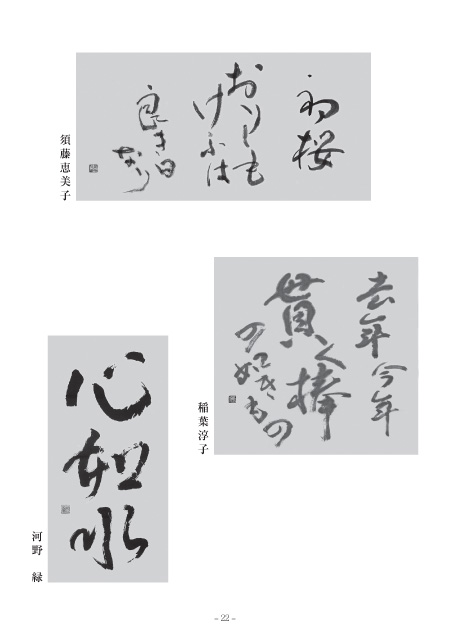 初桜
おりしも
けふは
良き日
なり
須藤恵美子
去年今年
貫く棒
の如きもの
稲葉淳子
心如水
河野 緑
– 22 –